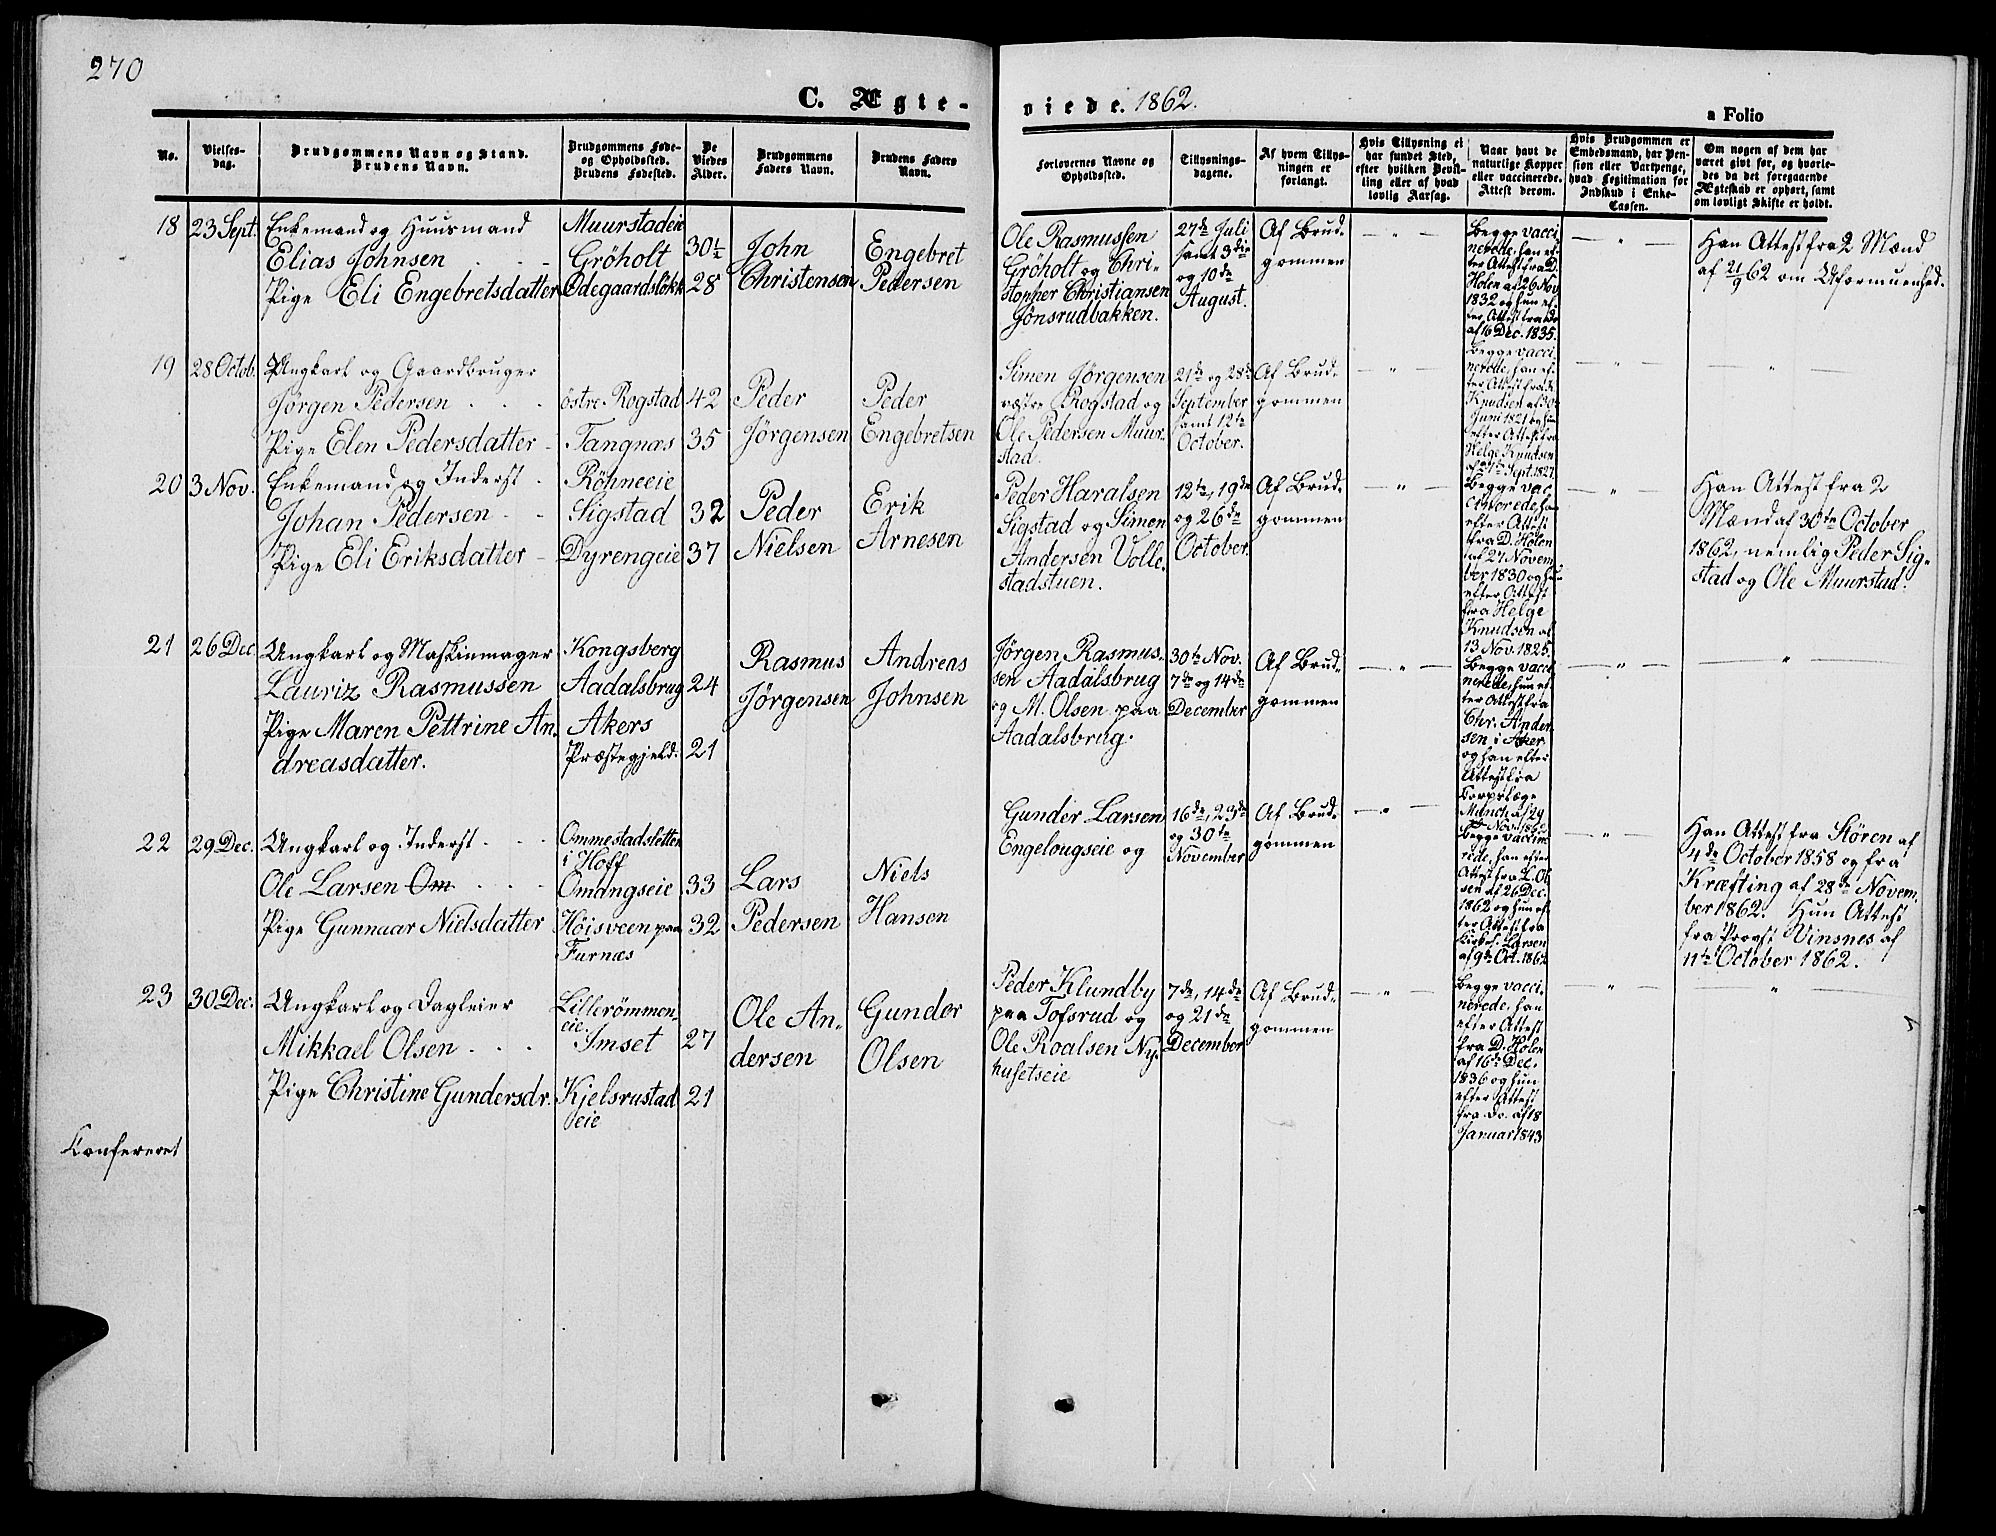 270
C. Ægte-
viede. 1862.
a Folio
No.
Vielses-
dag.
Brudgommens Navn og Stand.
Brudens Navn.
Brudgommens Føde-
og Opholdssted.
Brudens Fødested.
De
Viedes
Alder.
Brudgommens
Faders Navn.
Brudens Faders
Navn.
Forlovernes Navne og
Opholdssted.
Tillysnings-
dagene.
Af hvem Tillys-
ningen er
forlangt.
Hvis Tillysning ei
har fundet Sted,
efter hvilken Bevil-
ling eller af hvad
lovlig Aarsag.
Naar havt de
naturlige Kopper
eller vaccinerede.
Attest derom.
Hvis Brudgommen er
Embedsmand, har Pen-
sion eller Vartpenge,
hvad Legitimation for
Indskud i Enke-
Cassen.
Om nogen af dem har
været gift før, og hvorle-
des da det foregaaende
Ægteskab er ophørt, samt
om lovligt Skifte er holdt.
18
23 Sept.
Enkemand og Huusmand
Elias Johnsen
Pige Eli Engebretsdatter
Muurstadeie
Gröholt
Ödegaardslökk
30½
28
John
Christensen
Engebret
Pedersen
Ole Rasmussen
Gröholt og Chri-
stopher Christiansen
Jönsrudbakken.
27de Juli
samt 3die
og 10de
August.
Af Brud-
gommen
Begge vacci
nerede, han ef-
ter Attest fra D.
Holen af 26 Nov
1832 og hun ef-
ter Attest fra do
af 16 Dec. 1835.
Han Attest fra 2 Mænd
af 21/9 62 om Uformuenhed.
19
28 Octob.
Ungkarl og Gaardbruger
Jørgen Pedersen
Pige Elen Pedersdatter
östre Rogstad
Tangnæs
42
35
Peder
Jörgensen
Peder
Engebretsen
Simen Jørgensen
vestre Rogstad og
Ole Pedersen Muur-
stad.
21de og 28de
September
samt 12te
October.
Af Brud-
gommen
Begge vacci
nerede, han ef-
ter Attest fra H.
Knudsen af 30
Juni 1821 og hun
efter Attest fra
Helge Knudsen
af 27de Sept. 1827.
20
3 Nov.
Enkemand og Inderst
Johan Pedersen
Pige Eli Eriksdatter
Röhneeie
Sigstad
Dyrengeie
32
37
Peder
Nielsen
Erik
Arnesen
Peder Haralsen
Sigstad og Simen
Andersen Volle-
stadstuen.
12te, 19de
og 26de
October.
Af Brud-
gommen
Begge vac
cinerede, han
efter Attest
fra D. Holen
af 27 Novem
ber 1830 og hun
efter Attest
fra Helge
Knudsen af
13 Nov. 1825.
Han Attest fra 2
Mænd af 30te October
1862, nemlig Peder Sig-
stad og Ole Muurstad.
21
26 Dec.
Ungkarl og Maskinmager
Lauriz Rasmussen
Pige Maren Pettrine An-
dreasdatter.
Kongsberg
Aadalsbrug
Akers
Præstegjeld.
24
21
Rasmus
Jörgensen
Andreas
Johnsen
Jørgen Rasmus-
sen Aadalsbrug
og M. Olsen paa
Aadalsbrug.
30te Nov.
7de og 14de
December
Af Brud-
gommen
Begge vacci
nerede, hun ef-
ter Attest fra
Chr. Ander
sen i Aker
og han efter
Attest fra
Corpslæge
Munch af 29
Nov. 1862
22
29 Dec.
Ungkarl og Inderst
Ole Larsen Om
Pige Gunnaar Nielsdatter
Ommestadsletten
i Hoff
Omangseie
Höisveen paa
Furnæs
33
32
Lars
Pedersen
Niels
Hansen
Gunder Larsen
Engelougseie og
16de, 23de
og 30te
November
Af Brud-
gommen
Begge vaccine
rede, han efter
Attest fra L. Ol
sen af 26 Dec.
1862 og hun ef-
ter Attest fra
Kirkes. Larsen
af 9de Oct. 1862
Han Attest fra Stören af
4de October 1858 og fra
Kræfting af 28de Novem-
ber 1862. Hun Attest
fra Provst Vinsnes af
11te October 1862.
23
30 Dec.
Ungkarl og Dagleier
Mikkael Olsen
Pige Christine Gundersdr.
Lillerömmen-
eie
Imset
Kjelsrustad
eie
27
21
Ole An-
dersen
Gunder
Olsen
Peder Klundby
paa Tofsrud og
Ole Roalsen Ny-
husetseie
7de, 14de
og 21de
December
Af Brud-
gommen
Begge vacci-
nerede, han
efter Attest
fra D. Holen
af 16de Dec.
1836 og hun
efter Attest
fra do. af 18
Januar 1843
Confereret